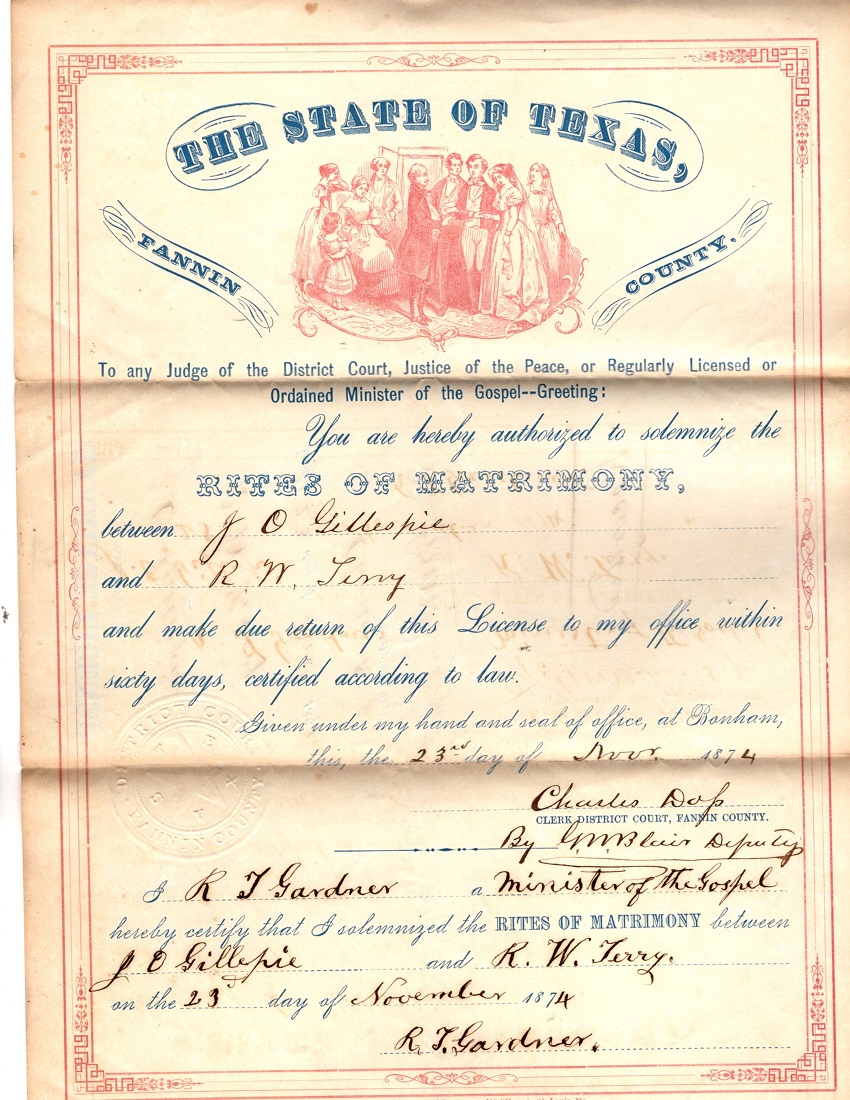 THE STATE OF TEXAS,
FANNIN COUNTY.
To any Judge of the District Court, Justice of the Peace, or Regularly Licensed or
Ordained Minister of the Gospel--Greeting:
You are hereby authorized to solemnize the
RITES OF MATRIMONY,
between J O Gillespie
and R. W. Terry
and make due return of this License to my office within
sixty days, certified according to law.
Given under my hand and seal of office, at Bonham,
this, the 23rd day of Novr. 1874
Charles Doss
CLERK DISTRICT COURT, FANNIN COUNTY.
By G.M. Blair Deputy
I R T Gardner a Minister of the Gospel
hereby certify that I solemnized the RITES OF MATRIMONY between
J O Gillepie and R. W. Terry.
on the 23d day of November 1874
R. T. Gardner.